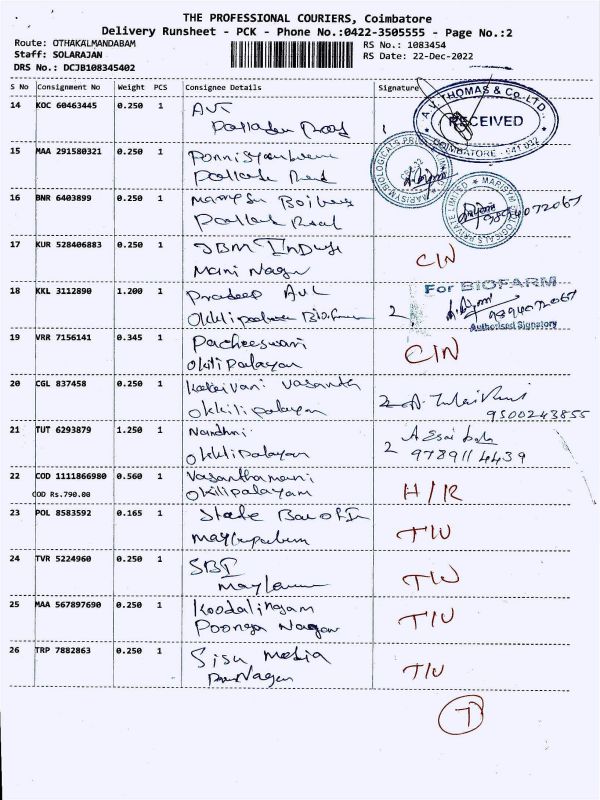 THE PROFESSIONAL COURIERS, Coimbatore
Delivery Runsheet - PCK - Phone No.:0422-3505555 - Page No.:2
Route: OTHAKALMANDABAM
Staff: SOLARAJAN
DRS No.: DCJB108345402
RS No.: 1083454
RS Date: 22-Dec-2022
S No Consignment No Weight PCS Consignee Details Signature
14 KOC 60463445 0.250 1 AVT
Road
A.V. THOMAS & Co. LTD.,
RECEIVED
COIMBATORE - 641 032
15 MAA 291580321 0.250 1
Road
MARISYM BIOLOGICALS PRIVATE LIMITED
16 BNR 6403899 0.250 1
Road
MARISYM BIOLOGICALS PRIVATE LIMITED
9894072067
17 KUR 528406883 0.250 1 JBM
Mani Nagar
C/N
18 KKL 3112890 1.200 1 Pradeep AVL
2
For BIOFARM
9894072067
Authorised Signatory
19 VRR 7156141 0.345 1 Pacheeswari
Okilipalayam
C/N
20 CGL 837458 0.250 1 Kalaivani Vasanth
Okkilipalayam
2
9500243855
21 TUT 6293879 1.250 1 Nandhni
Okkilipalayam
2
9789114439
22 COD 1111866980 0.560 1 Vasanthamani
COD Rs.790.00 Okilipalayam
H/R
23 POL 8583592 0.165 1 State
T/U
24 TVR 5224960 0.250 1 SBI
T/U
25 MAA 567897690 0.250 1 Koodalingam
Poonga Nagar
T/U
26 TRP 7882863 0.250 1 Sisu Media
Nagar
T/U
7